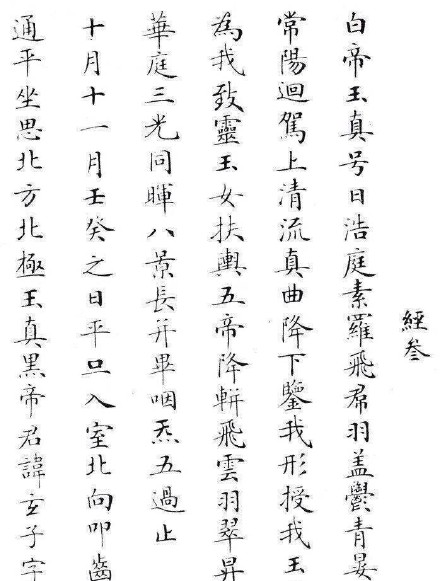 經叄
白帝玉真号曰浩庭素羅飛帬羽盖鬱青晏
常陽迴駕上清流真曲降下鑒我形授我玉
為我致靈玉女扶輿五帝降軿飛雲羽翠昇
華庭三光同暉八景長并畢咽炁五過止
十月十一月壬癸之日平旦入室北向叩齒
通平坐思北方北極玉真黒帝君諱玄子字